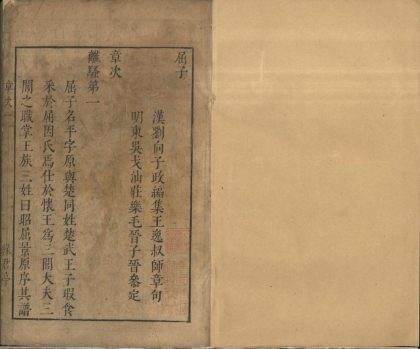 屈子
漢劉向子政編集王逸叔師章句
明東吳戈汕莊樂毛晉子晉參定
章次
離騷第一
屈子名平字原與楚同姓楚武王子瑕食
采於屈因氏焉仕於懷王為三閭大夫三
閭之職掌王族三姓曰昭屈景原序其譜
章次 一
綠君亭